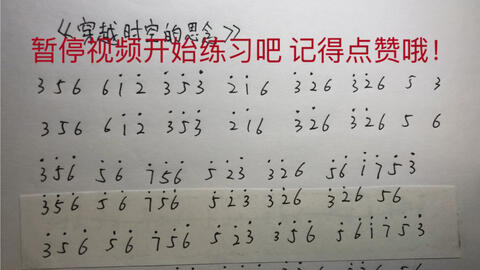 《穿越时空的思念》
暂停视频开始练习吧 记得点赞哦！
3 5 6 6 1̇ 2̇ 3̇ 5̇ 3̇ 2̇ 1̇ 6 3̇ 2̇ 6 3̇ 2̇ 6 5 3
3 5 6 6 1̇ 2̇ 3̇ 5̇ 3̇ 2̇ 1̇ 6 3̇ 2̇ 6 3̇ 2̇ 6 5 6
3̇ 5̇ 6̇ 5̇ 6̇ 7̇ 5̇ 6̇ 5̇ 2̇ 3̇ 3̇ 2̇ 6 5̇ 6̇ 1̇ 7̇ 5̇ 3̇
3̇ 5̇ 6̇ 5̇ 6̇ 7̇ 5̇ 6̇ 5̇ 2̇ 3̇ 3̇ 2̇ 6 3̇ 2̇ 6 5 6
3̇ 5̇ 6̇ 5̇ 6̇ 7̇ 5̇ 6̇ 5̇ 2̇ 3̇ 3̇ 5̇ 6̇ 5̇ 6̇ 1̇ 7̇ 5̇ 3̇